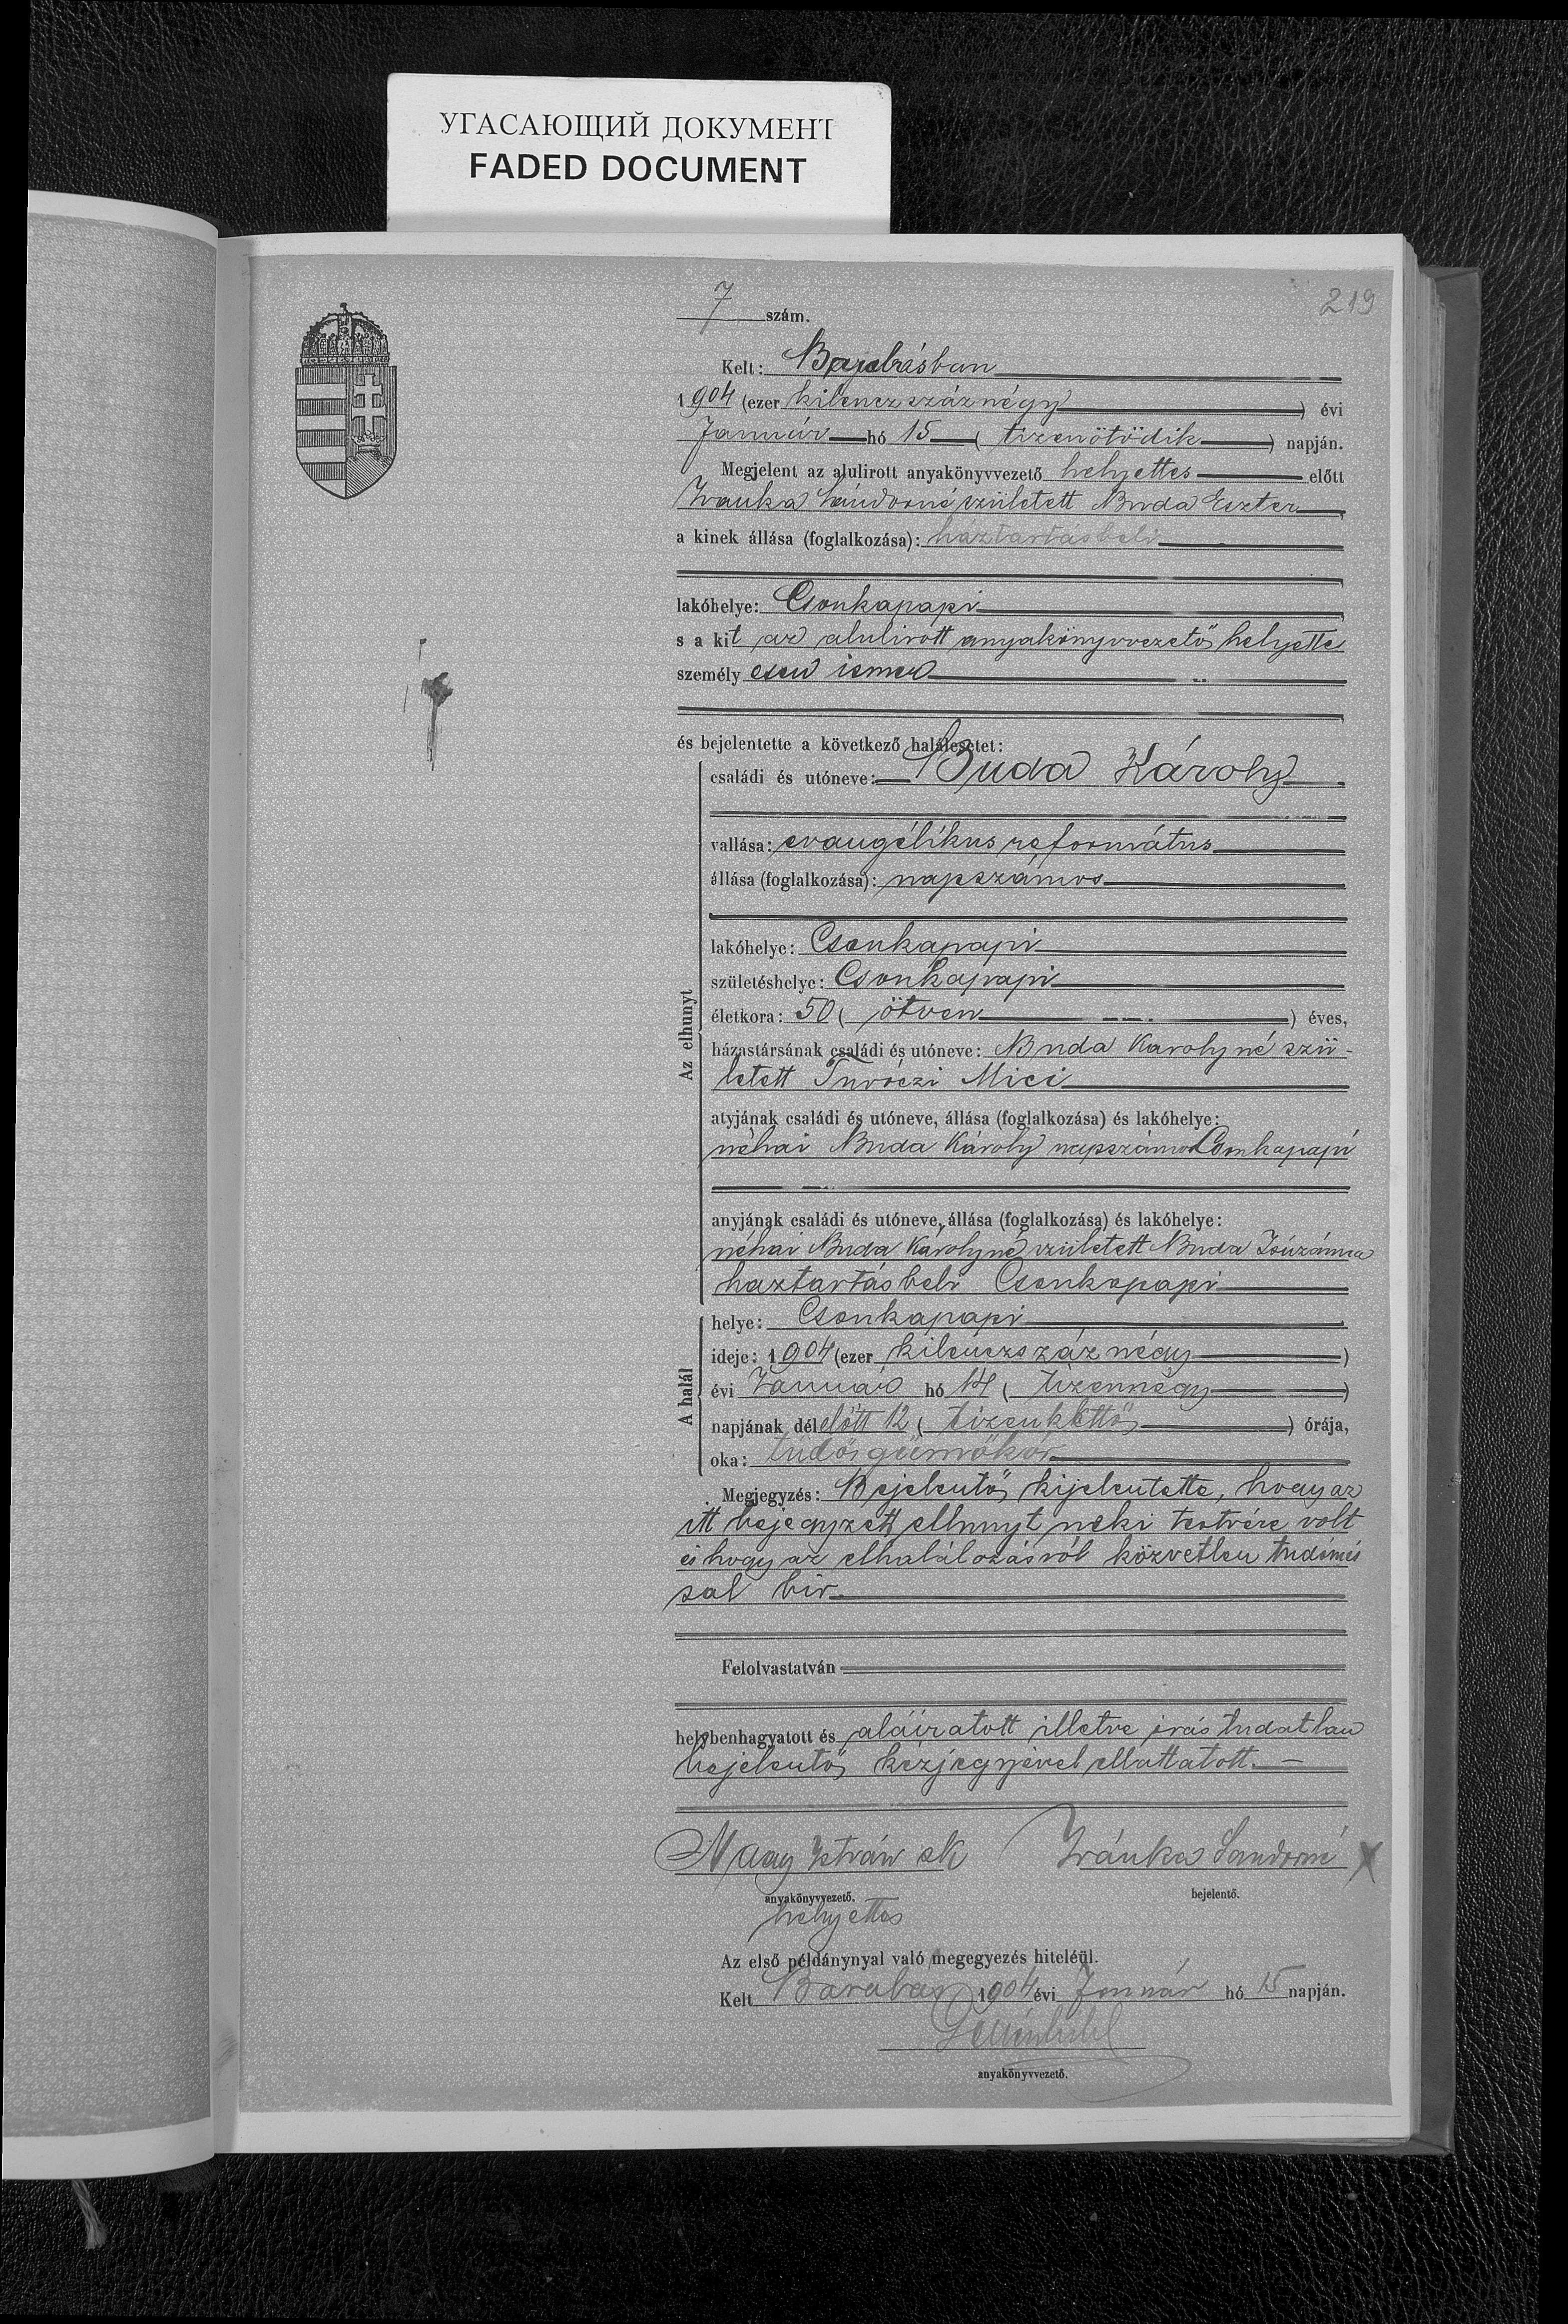 УГАСАЮЩИЙ ДОКУМЕНТ
FADED DOCUMENT
219
7 szám.
Kelt: Barabásban
1904 (ezer kilenczszáznégy) évi
Január hó 15 (tizenötödik) napján.
Megjelent az alulirott anyakönyvvezető helyettes előtt
Ivanka Sándorné született Buda Eszter
a kinek állása (foglalkozása): háztartásbeli
lakóhelye: Csonkapapi
s a kit az alulirott anyakönyvvezető helyette
személyesen ismer
és bejelentette a következő halálesetet:
Az elhunyt
családi és utóneve: Buda Károly
vallása: evangélikus református
állása (foglalkozása): napszámos
lakóhelye: Csonkapapi
születéshelye: Csonkapapi
életkora: 50 (ötven) éves,
házastársának családi és utóneve: Buda Karolyné szü-
letett Turóczi Mici
atyjának családi és utóneve, állása (foglalkozása) és lakóhelye:
néhai Buda Károly napszámos Csonkapapi
anyjának családi és utóneve, állása (foglalkozása) és lakóhelye:
néhai Buda Károlyné született Buda Zsúzánna
haztartásbeli Csonkapapi
A halál
helye: Csonkapapi
ideje: 1904 (ezer kilenczszáznégy)
évi Január hó 14 (tizennégy)
napjának délelőtt 12 (tizenkettő) órája,
oka: tüdőgümőkór
Megjegyzés: Bejelentő kijelentette, hogy az
itt bejegyzett elhunyt neki testvére volt
és hogy az elhalálozásról közvetlen tudomás
sal bir.
Felolvastatván
helybenhagyatott és aláiratott illetve irástudatlan
bejelentő kézjegyével elláttatott.
Nagy István sk Ivánka Sandorné X
anyakönyvvezető. bejelentő.
helyettes
Az első példánynyal való megegyezés hiteléül.
Kelt Barabás 1904 évi Január hó 15 napján.
anyakönyvvezető.